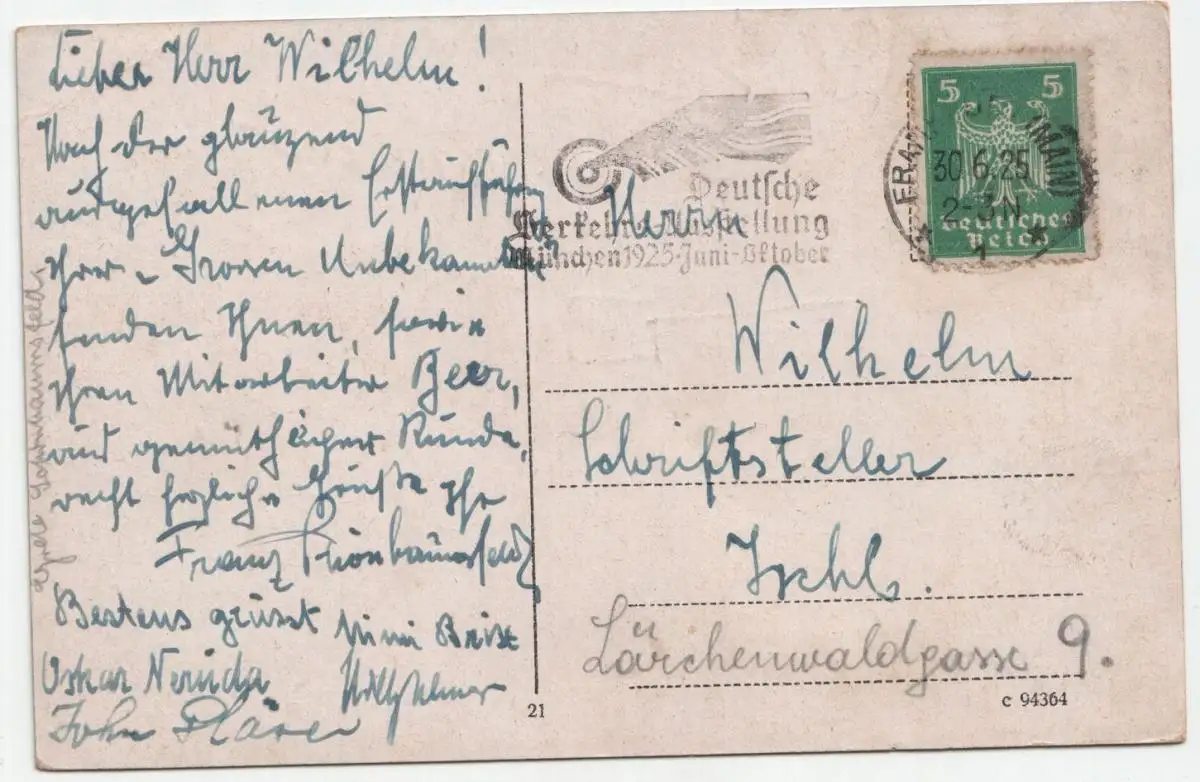 Lieber Herr Wilhelm!
Nach der glänzend
ausgefallenen Erstaufführung
Ihrer Unbekannten
senden Ihnen, sowie
Ihren Mitarbeiter Beer,
aus gemüthlicher Runde,
recht herzliche Grüße Ihr
Franz
Bestens grüsst Mimi
Oskar Neruda
John
Deutsche
Verkehrs Ausstellung
München 1925 Juni-Oktober
5 5
Deutsches
Reich
FRANKFURT (MAIN)
30.6.25
2-3 N
1
*
Herrn
Wilhelm
Schriftsteller
Ischl.
Lärchenwaldgasse 9.
21
C 94364